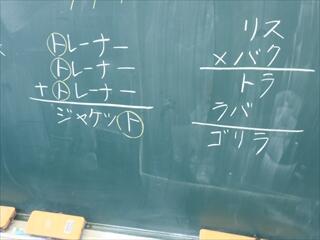 トレーナー
トレーナー
+ トレーナー
ジャケット
リス
×バク
トラ
ラバ
ゴリラ